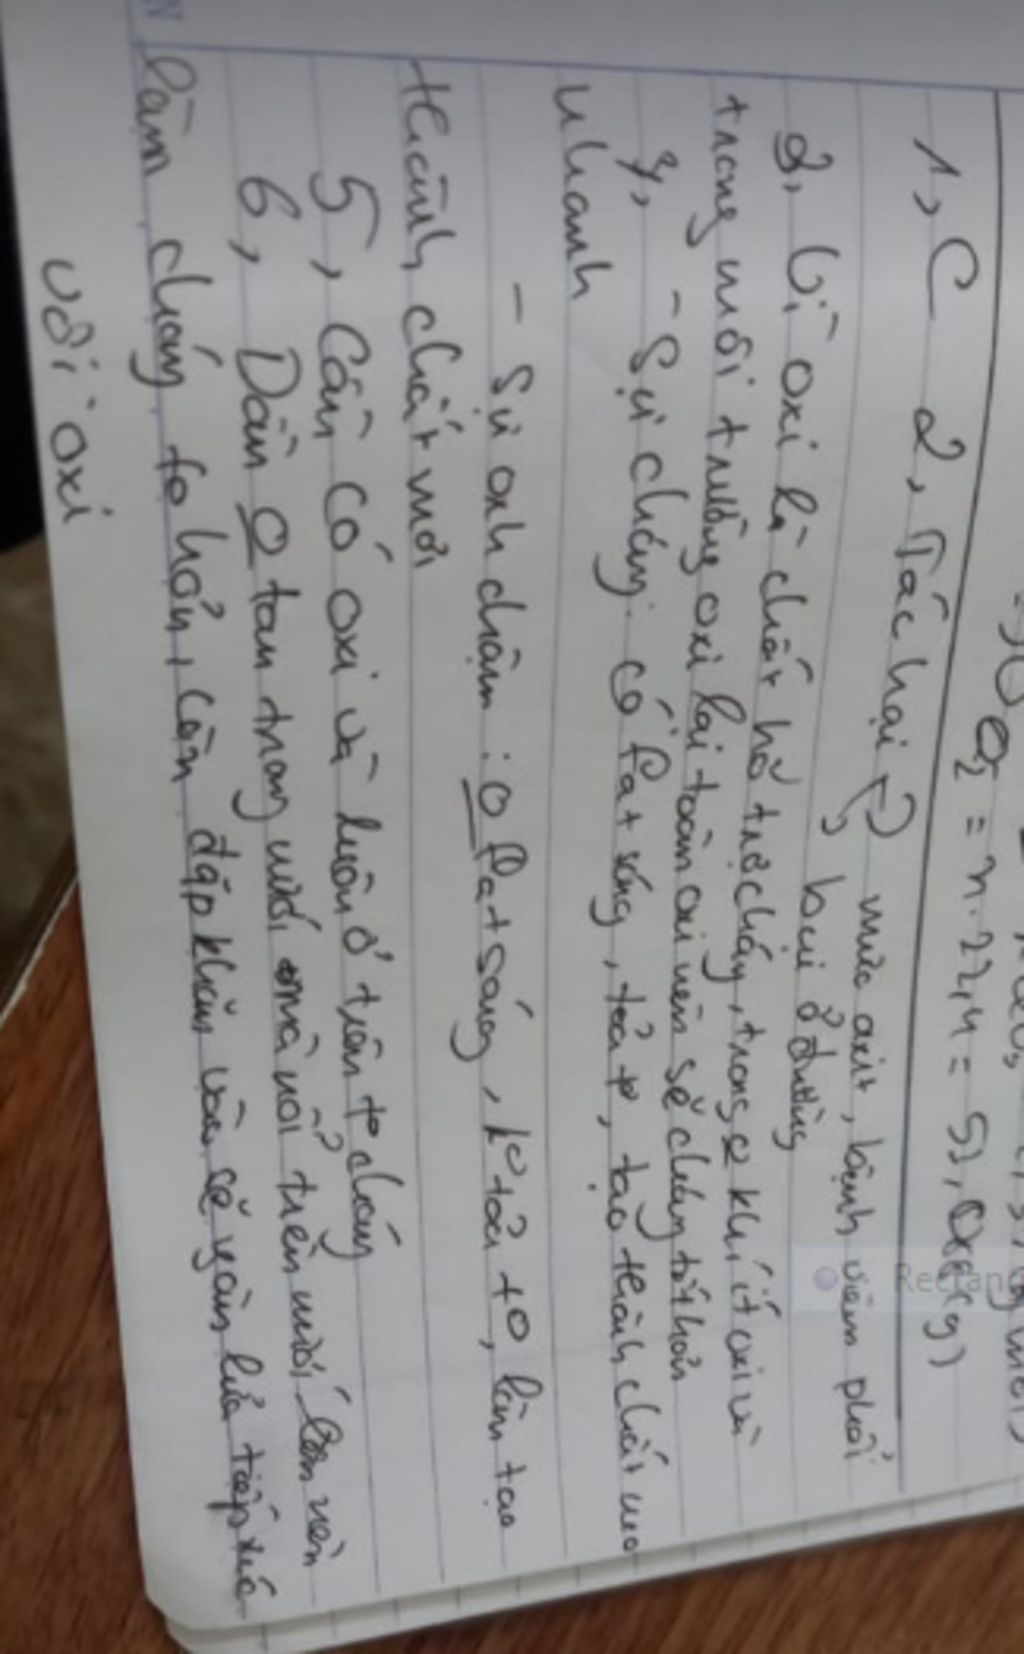 O₂ = n.22,4 = 51,08 (g)
1, C 2, Tác hại mưa axit, bệnh viêm phổi
bụi ở đường
3, Vì oxi là chất hỗ trợ cháy, trong khí ít oxi vì
trong môi trường oxi lại toàn oxi nên sẽ cháy tốt hơn
4, - Sự cháy: có fat sáng, tỏa to, tạo thành chất mới
nhanh
- Sự oxh chậm: o fat sáng, to, làm tạo
thành chất mới
5, Cần có oxi và luôn ở trên to cháy
6, Dầu o tan trong nước mà nổi trên nước, làm nên
lám cháy to hơn, còn đắp khăn vào sẽ ngăn lửa tiếp xúc
với oxi